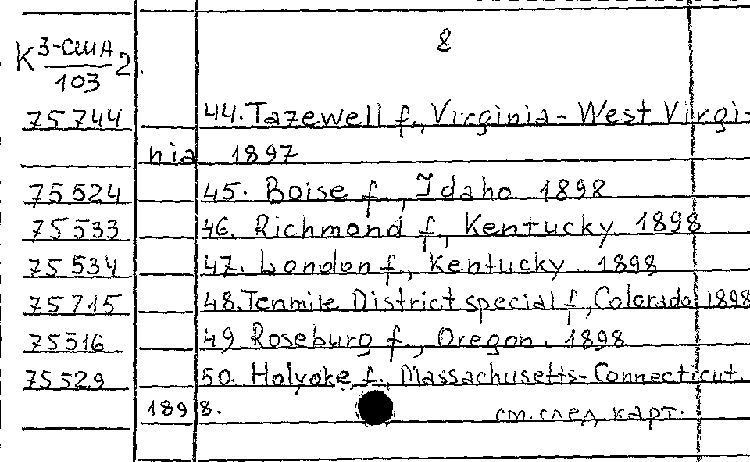 8
К 3-США/103 2.
75744 44. Tazewell f., Virginia - West Virgi-
nia 1897
75524 45. Boise f., Idaho 1898
75533 46. Richmond f., Kentucky 1898
75534 47. London f., Kentucky. 1898
75715 48. Tenmile District special f., Colorado 1898
75516 49 Roseburg f., Oregon. 1898
75529 50. Holyoke f. Massachusetts-Connecticut.
1898.
см. след карт.